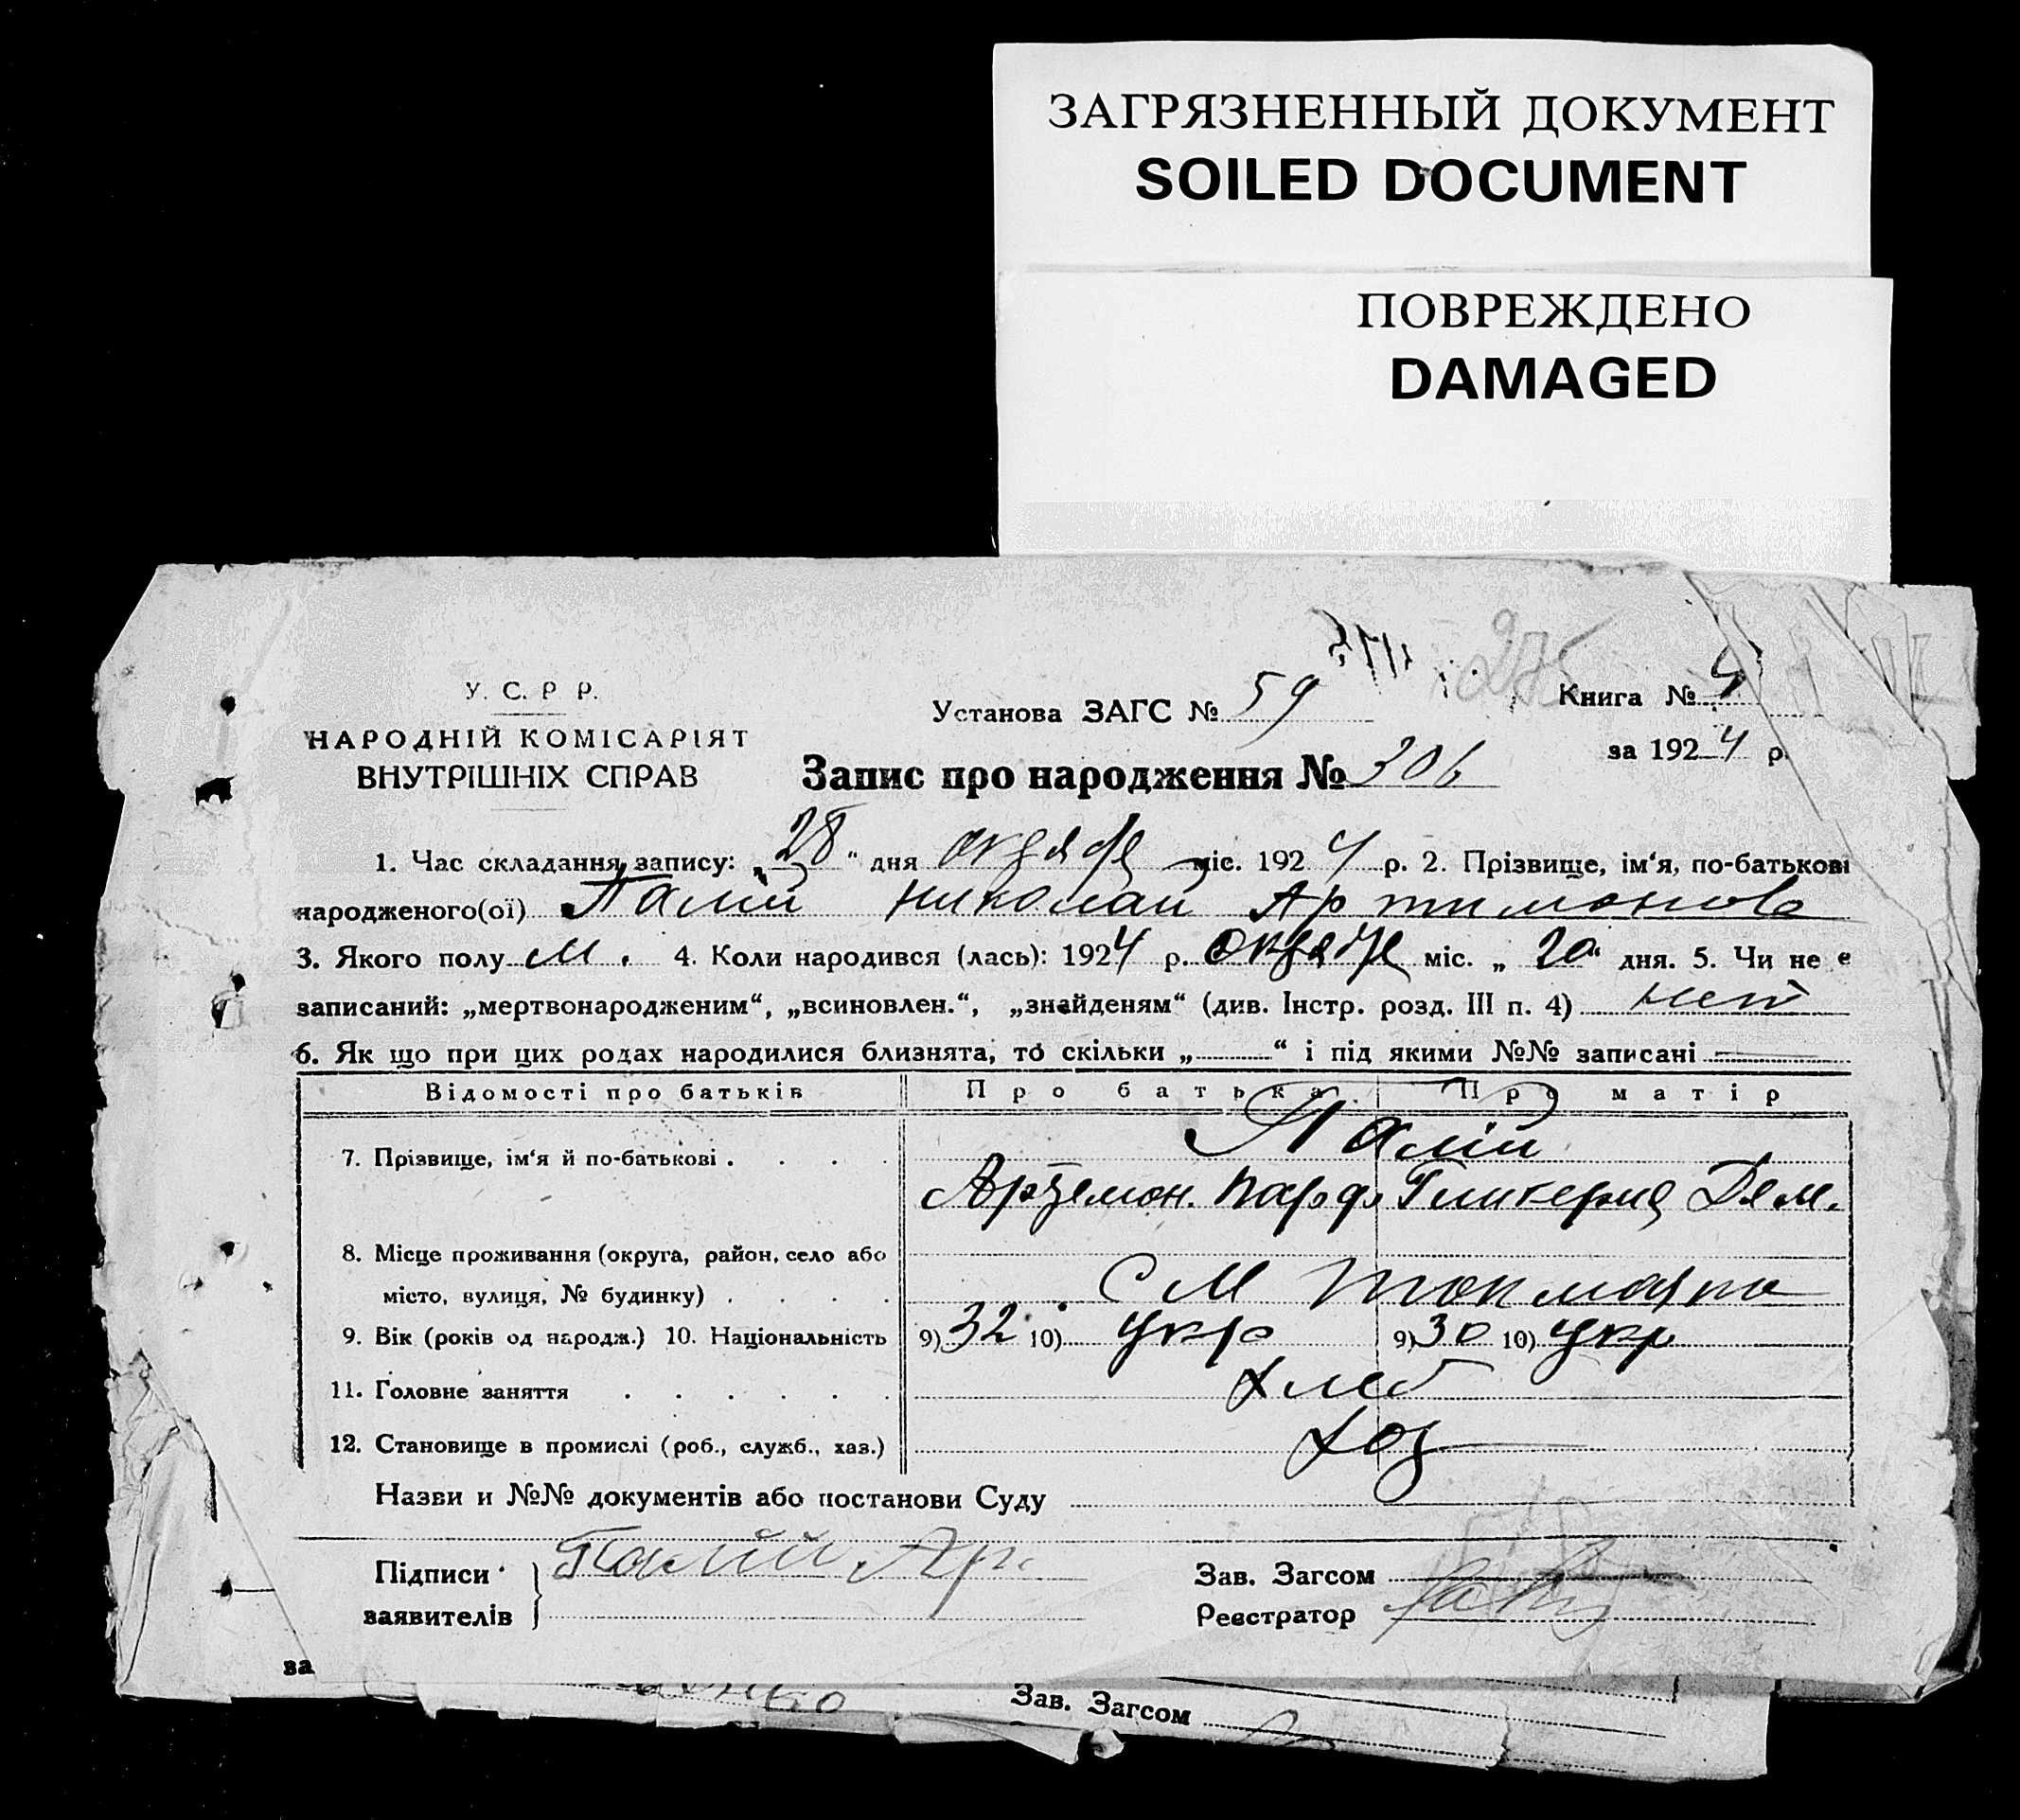 ЗАГРЯЗНЕННЫЙ ДОКУМЕНТ
SOILED DOCUMENT
ПОВРЕЖДЕНО
DAMAGED
275
У. С. Р Р.
НАРОДНІЙ КОМІСАРІЯТ
ВНУТРІШНІХ СПРАВ
Установа ЗАГС № 59
Книга № 4
за 1924 р.
Запис про народження № 306
1. Час складання запису: „28“ дня октября міс. 1924 р. 2. Прізвище, ім‘я, по-батькові
народженого(ої) Палій Николай Артимонов
3. Якого полу м. 4. Коли народився (лась): 1924 р. октября міс. „20“ дня. 5. Чи не є
записаний: „мертвонародженим“, „всиновлен.“, „знайденям“ (див. Інстр. розд. III п. 4) нет
6. Як що при цих родах народилися близнята, то скільки „ “ і під якими №№ записані
Відомості про батьків Про батька Про матір
Палій
7. Прізвище, ім‘я й по-батькові . . . .
Артемон. Парф. Гликерия Дем.
8. Місце проживання (округа, район, село або
місто, вулиця, № будинку) . . . . С М Токмачка
9. Вік (років од народж.) 10. Національність 9) 32 10) укр 9) 30 10) укр
11. Головне заняття . . . . . . хлеб
12. Становище в промислі (роб., служб., хаз.) хоз
Назви и №№ документів або постанови Суду
Підписи заявителів } Палий Ар.
Зав. Загсом
Реєстратор
за
Зав. Загсом